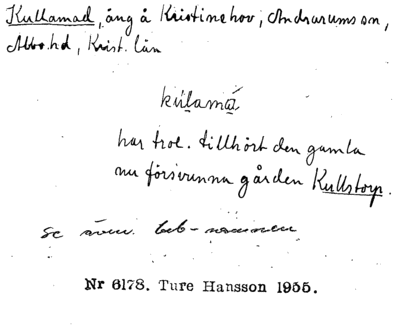 Kullamad, äng å Kristinehov, Andrarums sn,
Albo hd, Krist. län
ku̇lamȧ
har trol. tillhört den gamla
nu försvunna gården Kullstorp.
se även beb-namnen
Nr 6178. Ture Hansson 1955.